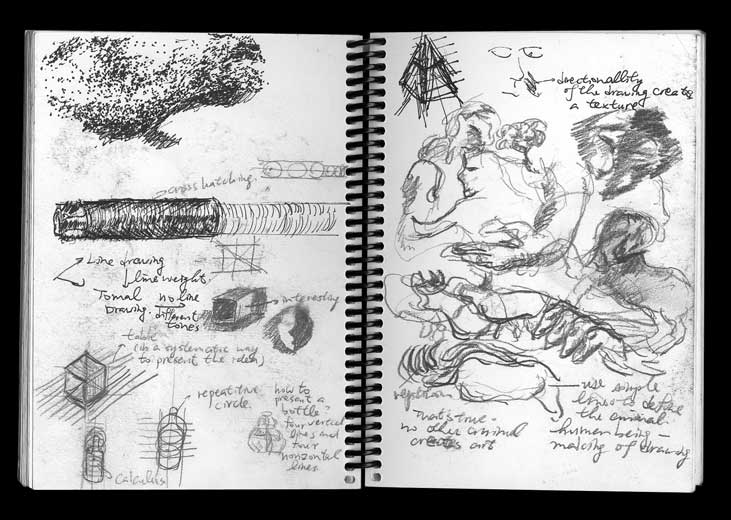 cross hatching.
Line drawing
line weight.
Tomal no line
Drawing. different
tones
interesting
table
(in a systematic way
to present the idea)
repeatitive
circle.
how to
present a
bottle?
four vertical
lines and
four
horizontal
lines.
Calculus
directionallity
of the drawing creats
a texture
use simple
lines to define
the animal.
human being —
making of drawing
That's true.
no other animal
creats art